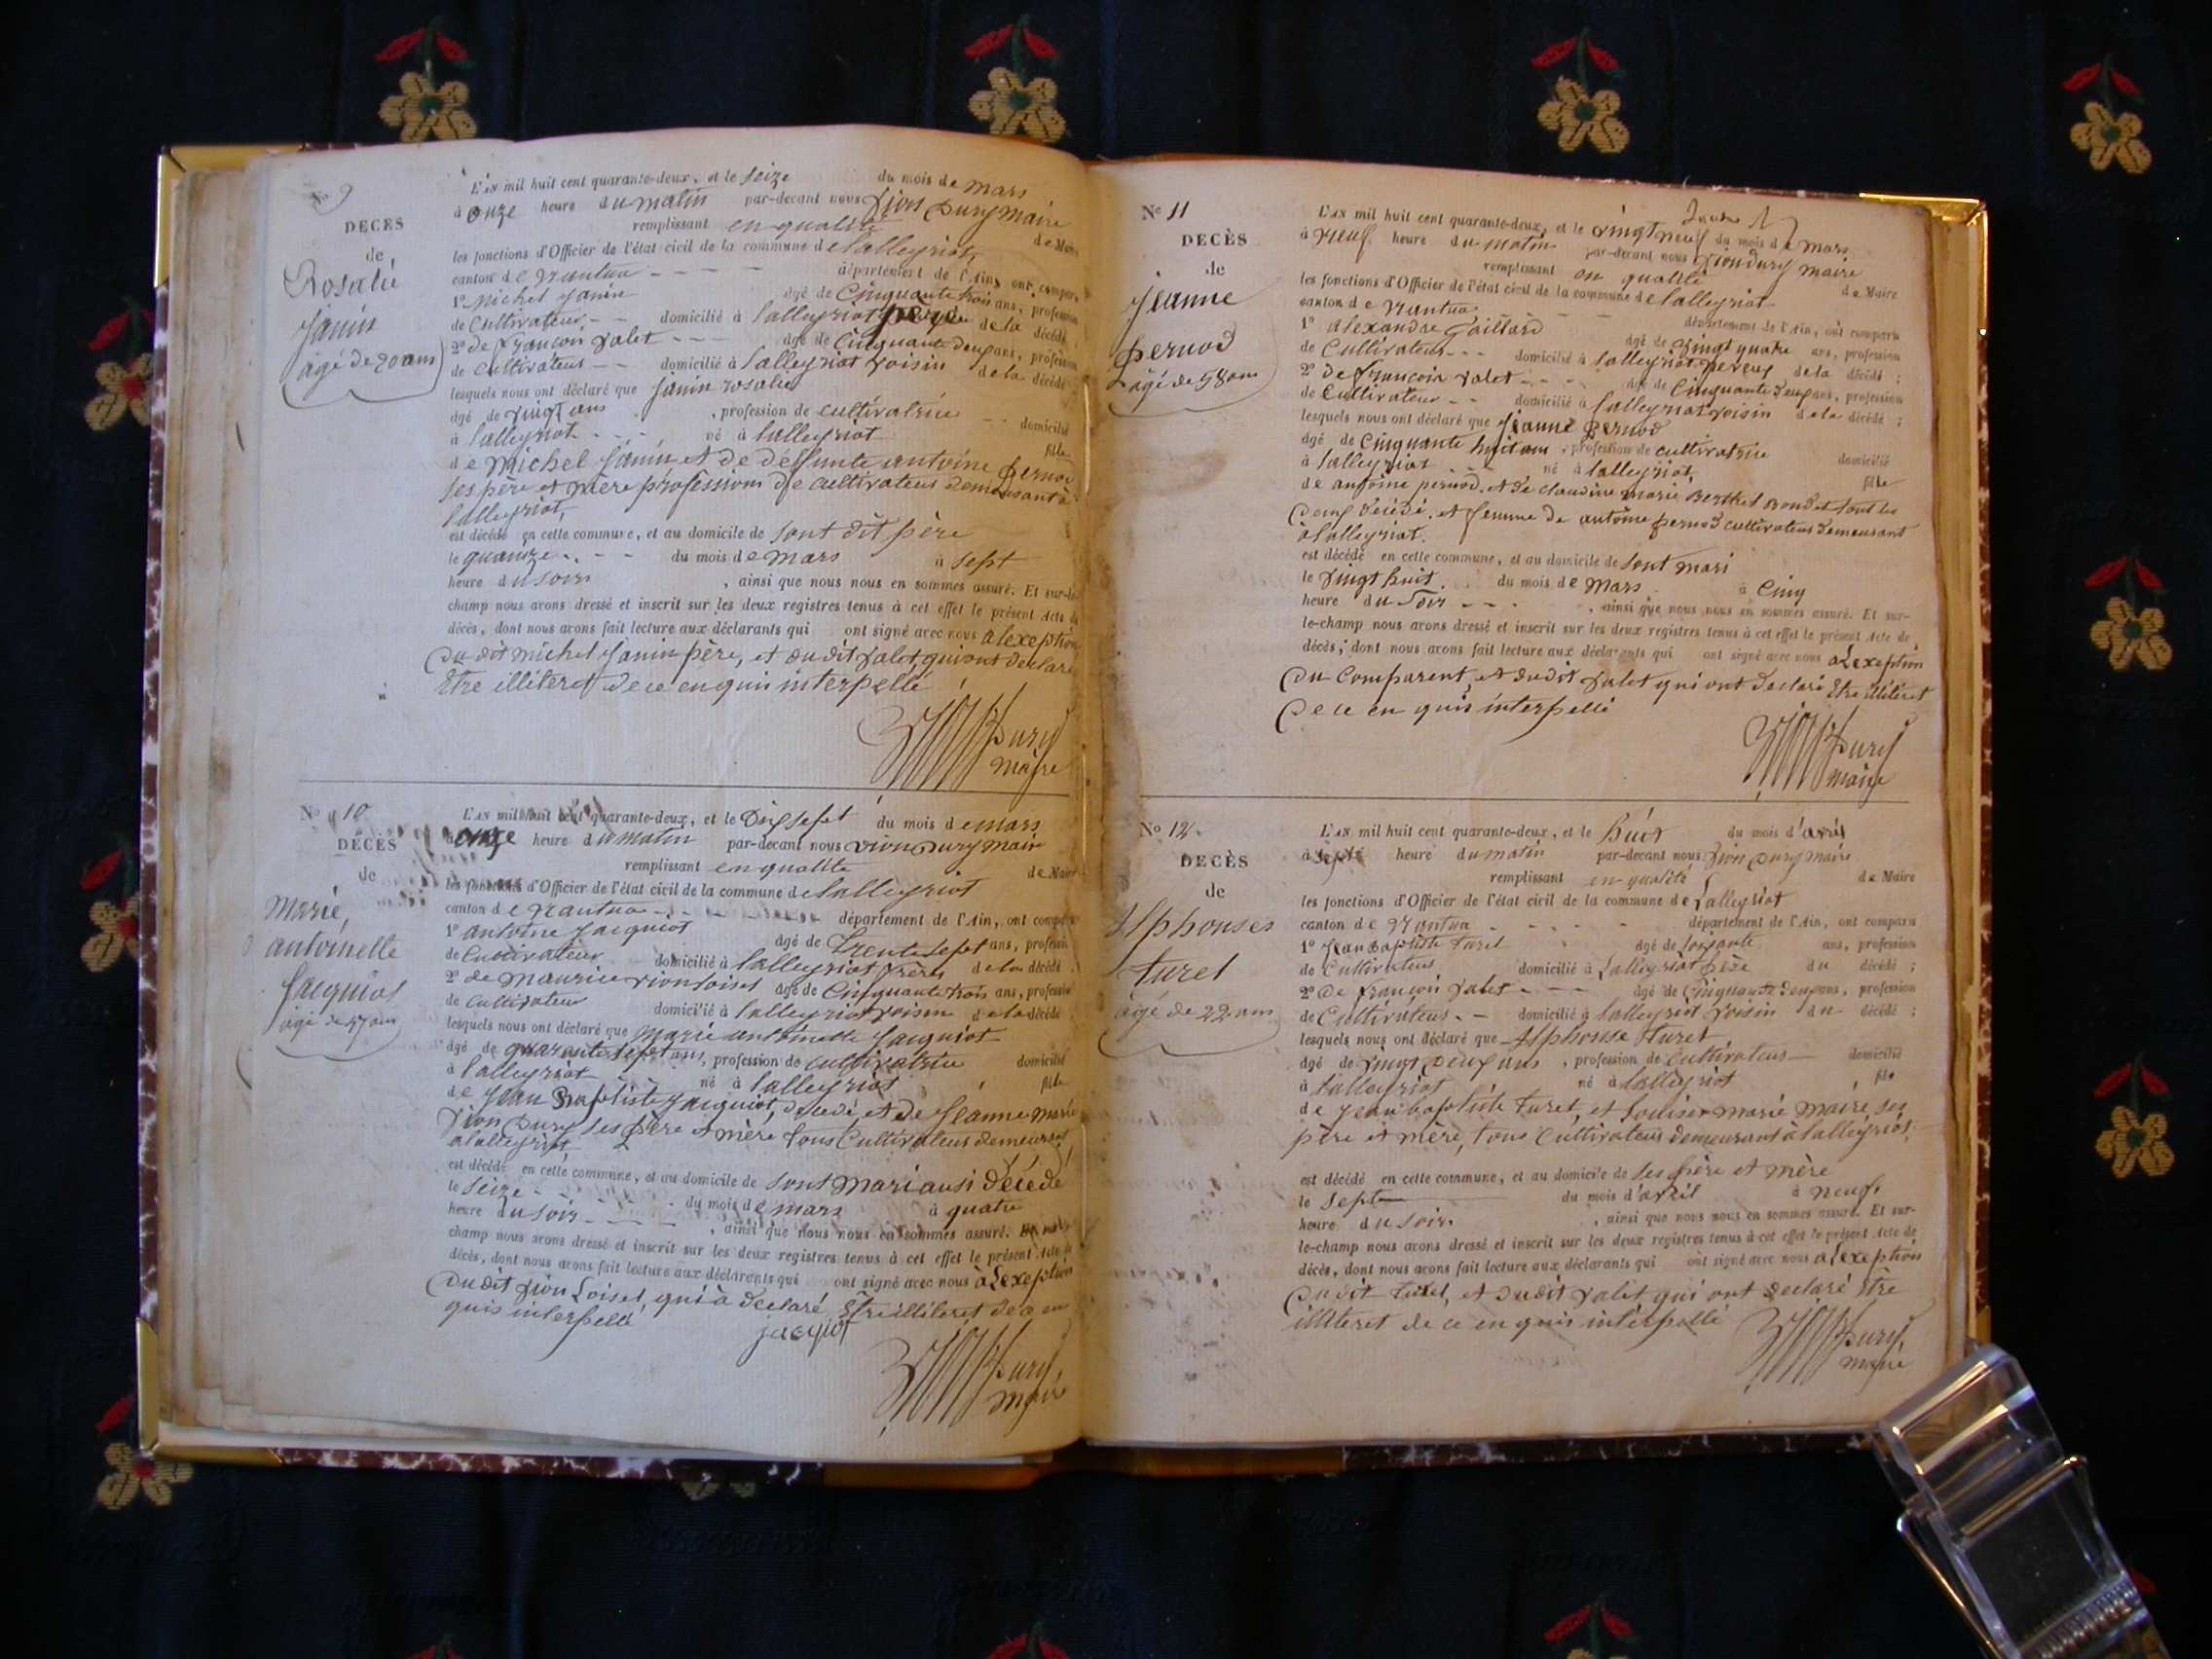 No 9
DÉCÈS
de
Rosalie
Janin
âgé de 20 ans
L'AN mil huit cent quarante-deux, et le seize du mois de mars
à onze heure du matin par-devant nous Vion Dury maire
remplissant en qualité de Maire
les fonctions d'Officier de l'état civil de la commune de lalleyriat,
canton de Nantua département de l'Ain, ont comparu
1° Michel Janin âgé de Cinquante trois ans, profession
de Cultivateur domicilié à lalleyriat père de la décédé
2° de françois Jalet âgé de Cinquante deux ans, profession
de Cultivateur domicilié à lalleyriat voisin de la décédé
lesquels nous ont déclaré que Janin rosalie
âgé de vingt ans, profession de cultivatrice domicilié
à lalleyriat né à lalleyriat fille
de Michel Janin et de deffunte antoine pernod
ses père et mère profession de cultivateur demeurant à
lalleyriat,
est décédé en cette commune, et au domicile de sont dit père
le quainze du mois de mars à sept
heure du soir, ainsi que nous nous en sommes assuré. Et sur-le-
champ nous avons dressé et inscrit sur les deux registres tenus à cet effet le présent Acte de
décès, dont nous avons fait lecture aux déclarants qui ont signé avec nous alexeption
du dit michel Janin père, et du dit Jalet, qui ont declaré
Etre illiteret de ce en quis interpellé
Dury
maire
No 10
DÉCÈS
de
Marie,
antoinette
Jacquiot
âgé de 47 ans
L'AN mil huit cent quarante-deux, et le Dixsept du mois de mars
à onze heure du matin par-devant nous Vion Dury maire
remplissant en qualité de Maire
les fonctions d'Officier de l'état civil de la commune de lalleyriat
canton de Nantua département de l'Ain, ont comparu
1° antoine Jacquiot âgé de Trente sept ans, profession
de Cultivateur domicilié à lalleyriat frère de la décédé
2° de maurice vion loiset âgé de Cinquante trois ans, profession
de Cultivateur domicilié à lalleyriat voisin de la décédé
lesquels nous ont déclaré que Marie antoinette Jacquiot
âgé de quarante sept ans, profession de cultivatrice domicilié
à lalleyriat né à lalleyriat fille
de Jean Baptiste Jacquiot, décédé et de Jeanne Marie
Vion Dury ses père et mère tous Cultivateur demeurant
a lalleyriat
est décédé en cette commune, et au domicile de sont Mari ausi décédé
le seize du mois de mars à quatre
heure du soir, ainsi que nous nous en sommes assuré. Et sur-le-
champ nous avons dressé et inscrit sur les deux registres tenus à cet effet le présent Acte de
décès, dont nous avons fait lecture aux déclarants qui ont signé avec nous à Lexeption
Du dit Vion Loiset, qui à declaré Etre illiteret de ce en
quis interpellé
jacquiot
Dury
maire
No 11
DÉCÈS
de
Jeanne
pernod
âgé de 58 ans
L'AN mil huit cent quarante-deux, et le vingt neuf du mois de mars
à Neuf heure du matin par-devant nous Vion Dury maire
remplissant en qualité de Maire
les fonctions d'Officier de l'état civil de la commune de lalleyriat
canton de Nantua département de l'Ain, ont comparu
1° alexandre Gaillard âgé de Vingt quatre ans, profession
de Cultivateur domicilié à lalleyriat neveux de la décédé;
2° de françois Jalet âgé de Cinquante deux ans, profession
de Cultivateur domicilié à lalleyriat voisin de la décédé;
lesquels nous ont déclaré que Jeanne pernod
âgé de Cinquante huit ans, profession de cultivatrice domicilié
à lalleyriat né à lalleyriat, fille
de antoine pernod. et de claudine marie Berthet Bondet tout les
Deux décédé. et femme de antoine pernod cultivateur Demeurant
à lalleyriat.
est décédé en cette commune, et au domicile de sont mari
le vingt huit du mois de mars à Cinq
heure du soir, ainsi que nous nous en sommes assuré. Et sur-
le-champ nous avons dressé et inscrit sur les deux registres tenus à cet effet le présent Acte de
décès, dont nous avons fait lecture aux déclarants qui ont signé avec nous a Lexeption
Du Comparent, et du dit Jalet qui ont declaré Etre illiteret
De ce en quis interpellé
Dury
maire
No 12
DÉCÈS
de
Alphonses
Turel
âgé de 22 ans
L'AN mil huit cent quarante-deux, et le huit du mois d'avril
à sept heure du matin par-devant nous Vion Dury maire
remplissant en qualité de Maire
les fonctions d'Officier de l'état civil de la commune de Lalleyriat
canton de Nantua département de l'Ain, ont comparu
1° Jean Baptiste turel âgé de soixante ans, profession
de Cultivateur domicilié à Lalleyriat père du décédé;
2° De françois Jalet âgé de Cinquante deux ans, profession
de Cultivateur domicilié à lalleyriat voisin du décédé;
lesquels nous ont déclaré que Alphonse Turel
âgé de vingt deux ans, profession de Cultivateur domicilié
à lalleyriat né à lalleyriat fils
de Jean baptiste turel, et Louise marie Maire, ses
père et mère, tous Cultivateur demeurant à lalleyriat,
est décédé en cette commune, et au domicile de ses père et mère
le sept du mois d'avril à neuf
heure du soir, ainsi que nous nous en sommes assuré. Et sur-
le-champ nous avons dressé et inscrit sur les deux registres tenus à cet effet le présent Acte de
décès, dont nous avons fait lecture aux déclarants qui ont signé avec nous a Lexeption
Du dit turel, et du dit Jalet qui ont declaré Etre
illiteret de ce en quis interpellé
Dury
maire